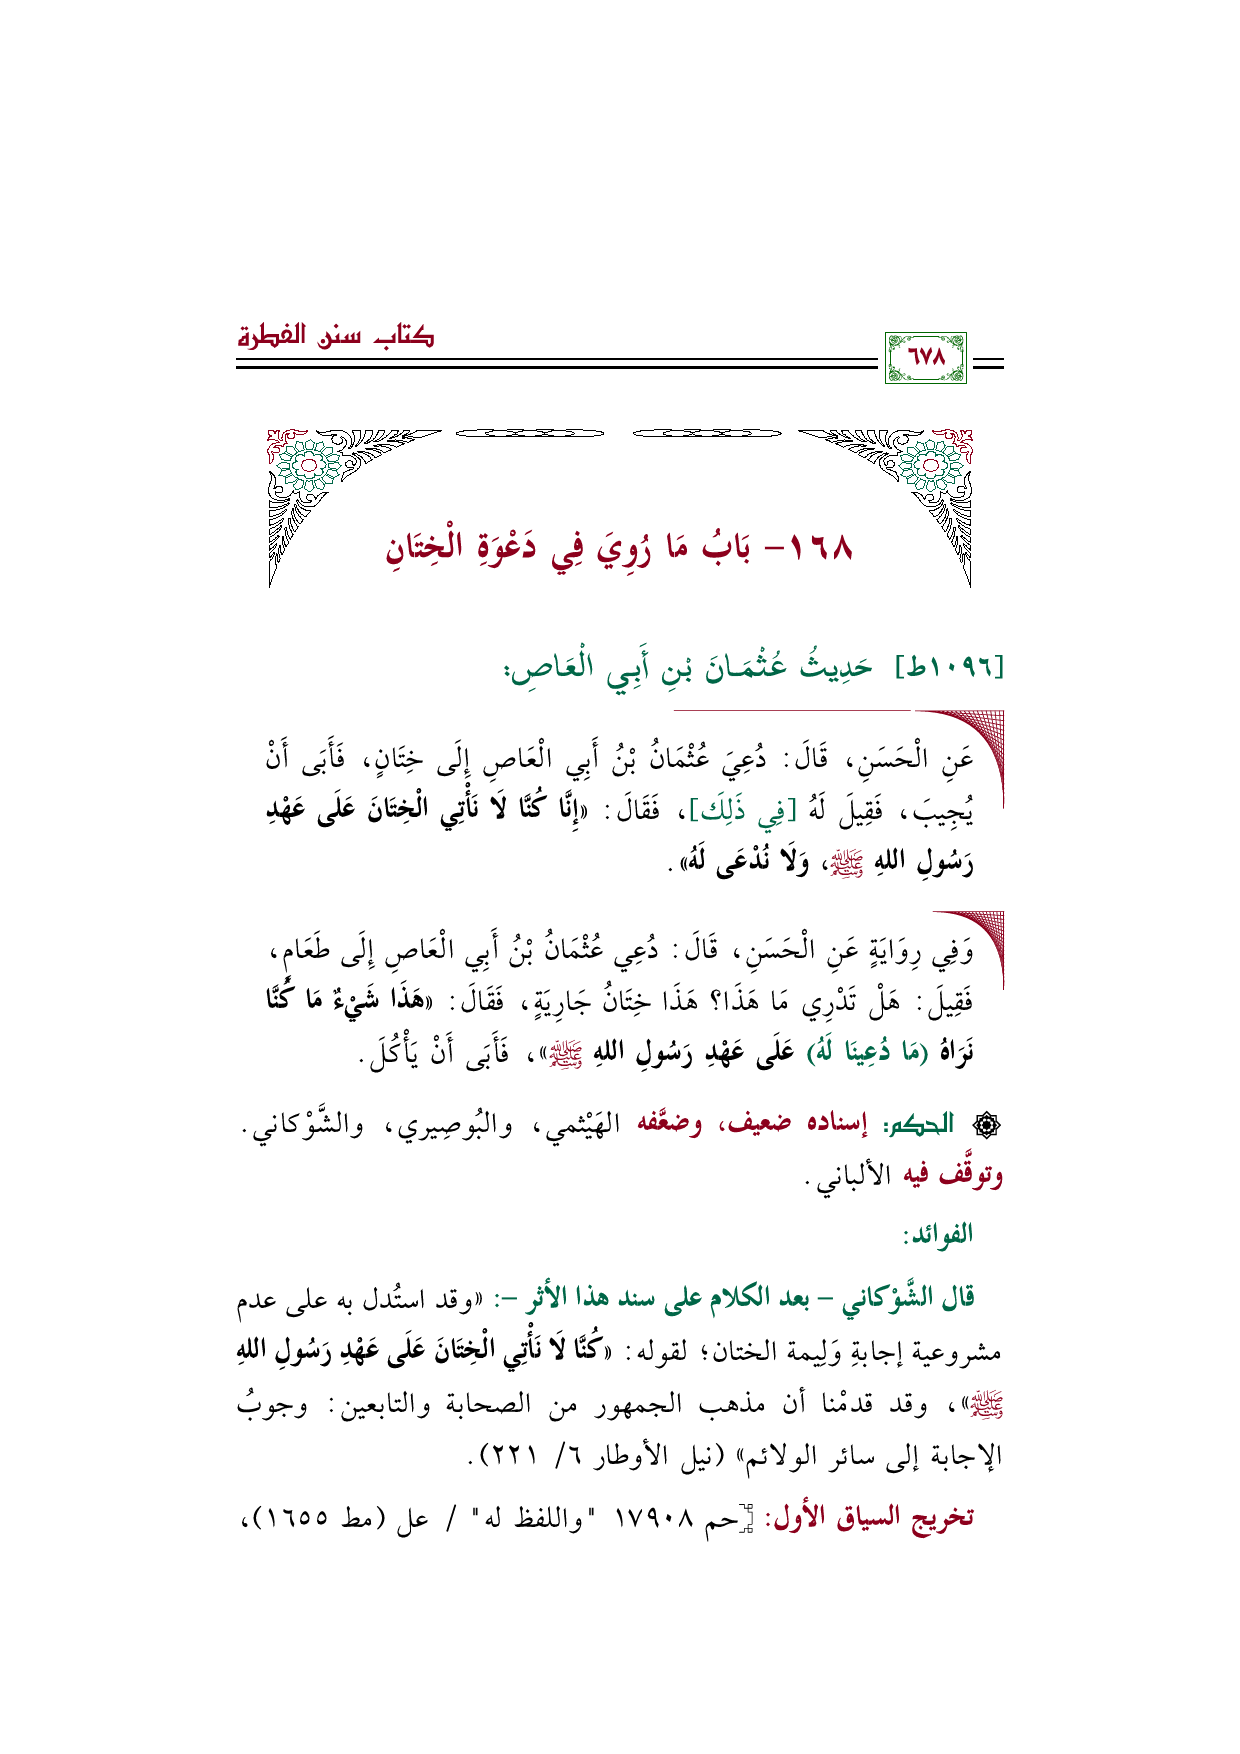 كتاب سنن الفطرة
٦٧٨
١٦٨- بَابُ مَا رُوِيَ فِي دَعْوَةِ الْخِتَانِ
[١٠٩٦ط] حَدِيثُ عُثْمَانَ بْنِ أَبِي الْعَاصِ:
عَنِ الْحَسَنِ، قَالَ: دُعِيَ عُثْمَانُ بْنُ أَبِي الْعَاصِ إِلَى خِتَانٍ، فَأَبَى أَنْ
يُجِيبَ، فَقِيلَ لَهُ [فِي ذَلِكَ]، فَقَالَ: «إِنَّا كُنَّا لَا نَأْتِي الْخِتَانَ عَلَى عَهْدِ
رَسُولِ اللهِ ﷺ، وَلَا نُدْعَى لَهُ».
وَفِي رِوَايَةٍ عَنِ الْحَسَنِ، قَالَ: دُعِي عُثْمَانُ بْنُ أَبِي الْعَاصِ إِلَى طَعَامٍ،
فَقِيلَ: هَلْ تَدْرِي مَا هَذَا؟ هَذَا خِتَانُ جَارِيَةٍ، فَقَالَ: «هَذَا شَيْءٌ مَا كُنَّا
نَرَاهُ (مَا دُعِينَا لَهُ) عَلَى عَهْدِ رَسُولِ اللهِ ﷺ»، فَأَبَى أَنْ يَأْكُلَ.
الحكم: إسناده ضعيف، وضعَّفه الهَيْثمي، والبُوصِيري، والشَّوْكاني.
وتوقَّف فيه الألباني.
الفوائد:
قال الشَّوْكاني – بعد الكلام على سند هذا الأثر –: «وقد استُدل به على عدم
مشروعية إجابةِ وَلِيمة الختان؛ لقوله: «كُنَّا لَا نَأْتِي الْخِتَانَ عَلَى عَهْدِ رَسُولِ اللهِ
ﷺ»، وقد قدمْنا أن مذهب الجمهور من الصحابة والتابعين: وجوبُ
الإجابة إلى سائر الولائم» (نيل الأوطار ٦/ ٢٢١).
تخريج السياق الأول: [حم ١٧٩٠٨ "واللفظ له" / عل (مط ١٦٥٥)،